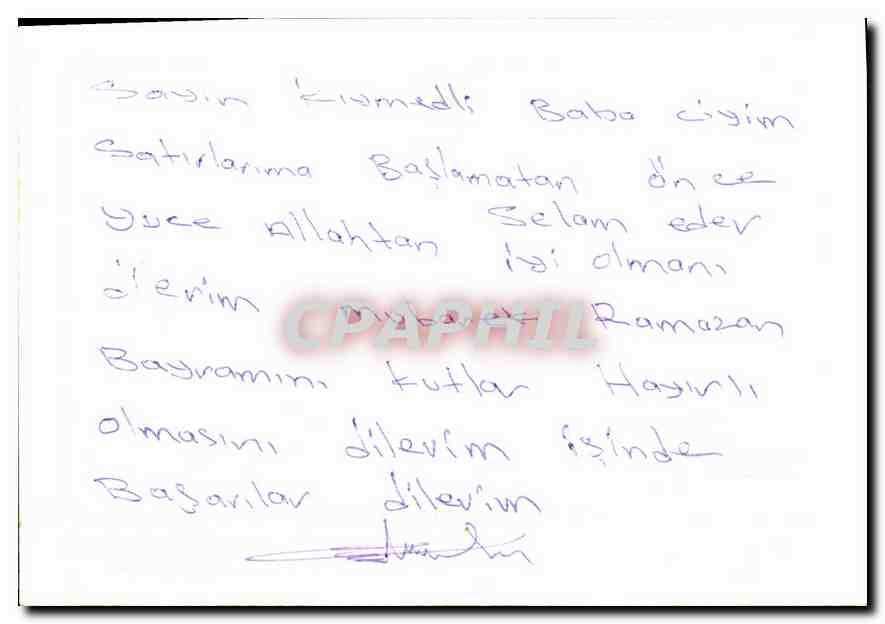 Sayın Kıymedli Baba ciyim
Satırlarıma Başlamatan önce
yuce Allahtan Selam eder
iyi olmanı
dilerim mubarek Ramazan
CPAPHIL
Bayramını kutlar Hayırlı
olmasını dilerim işinde
Başarılar dilerim